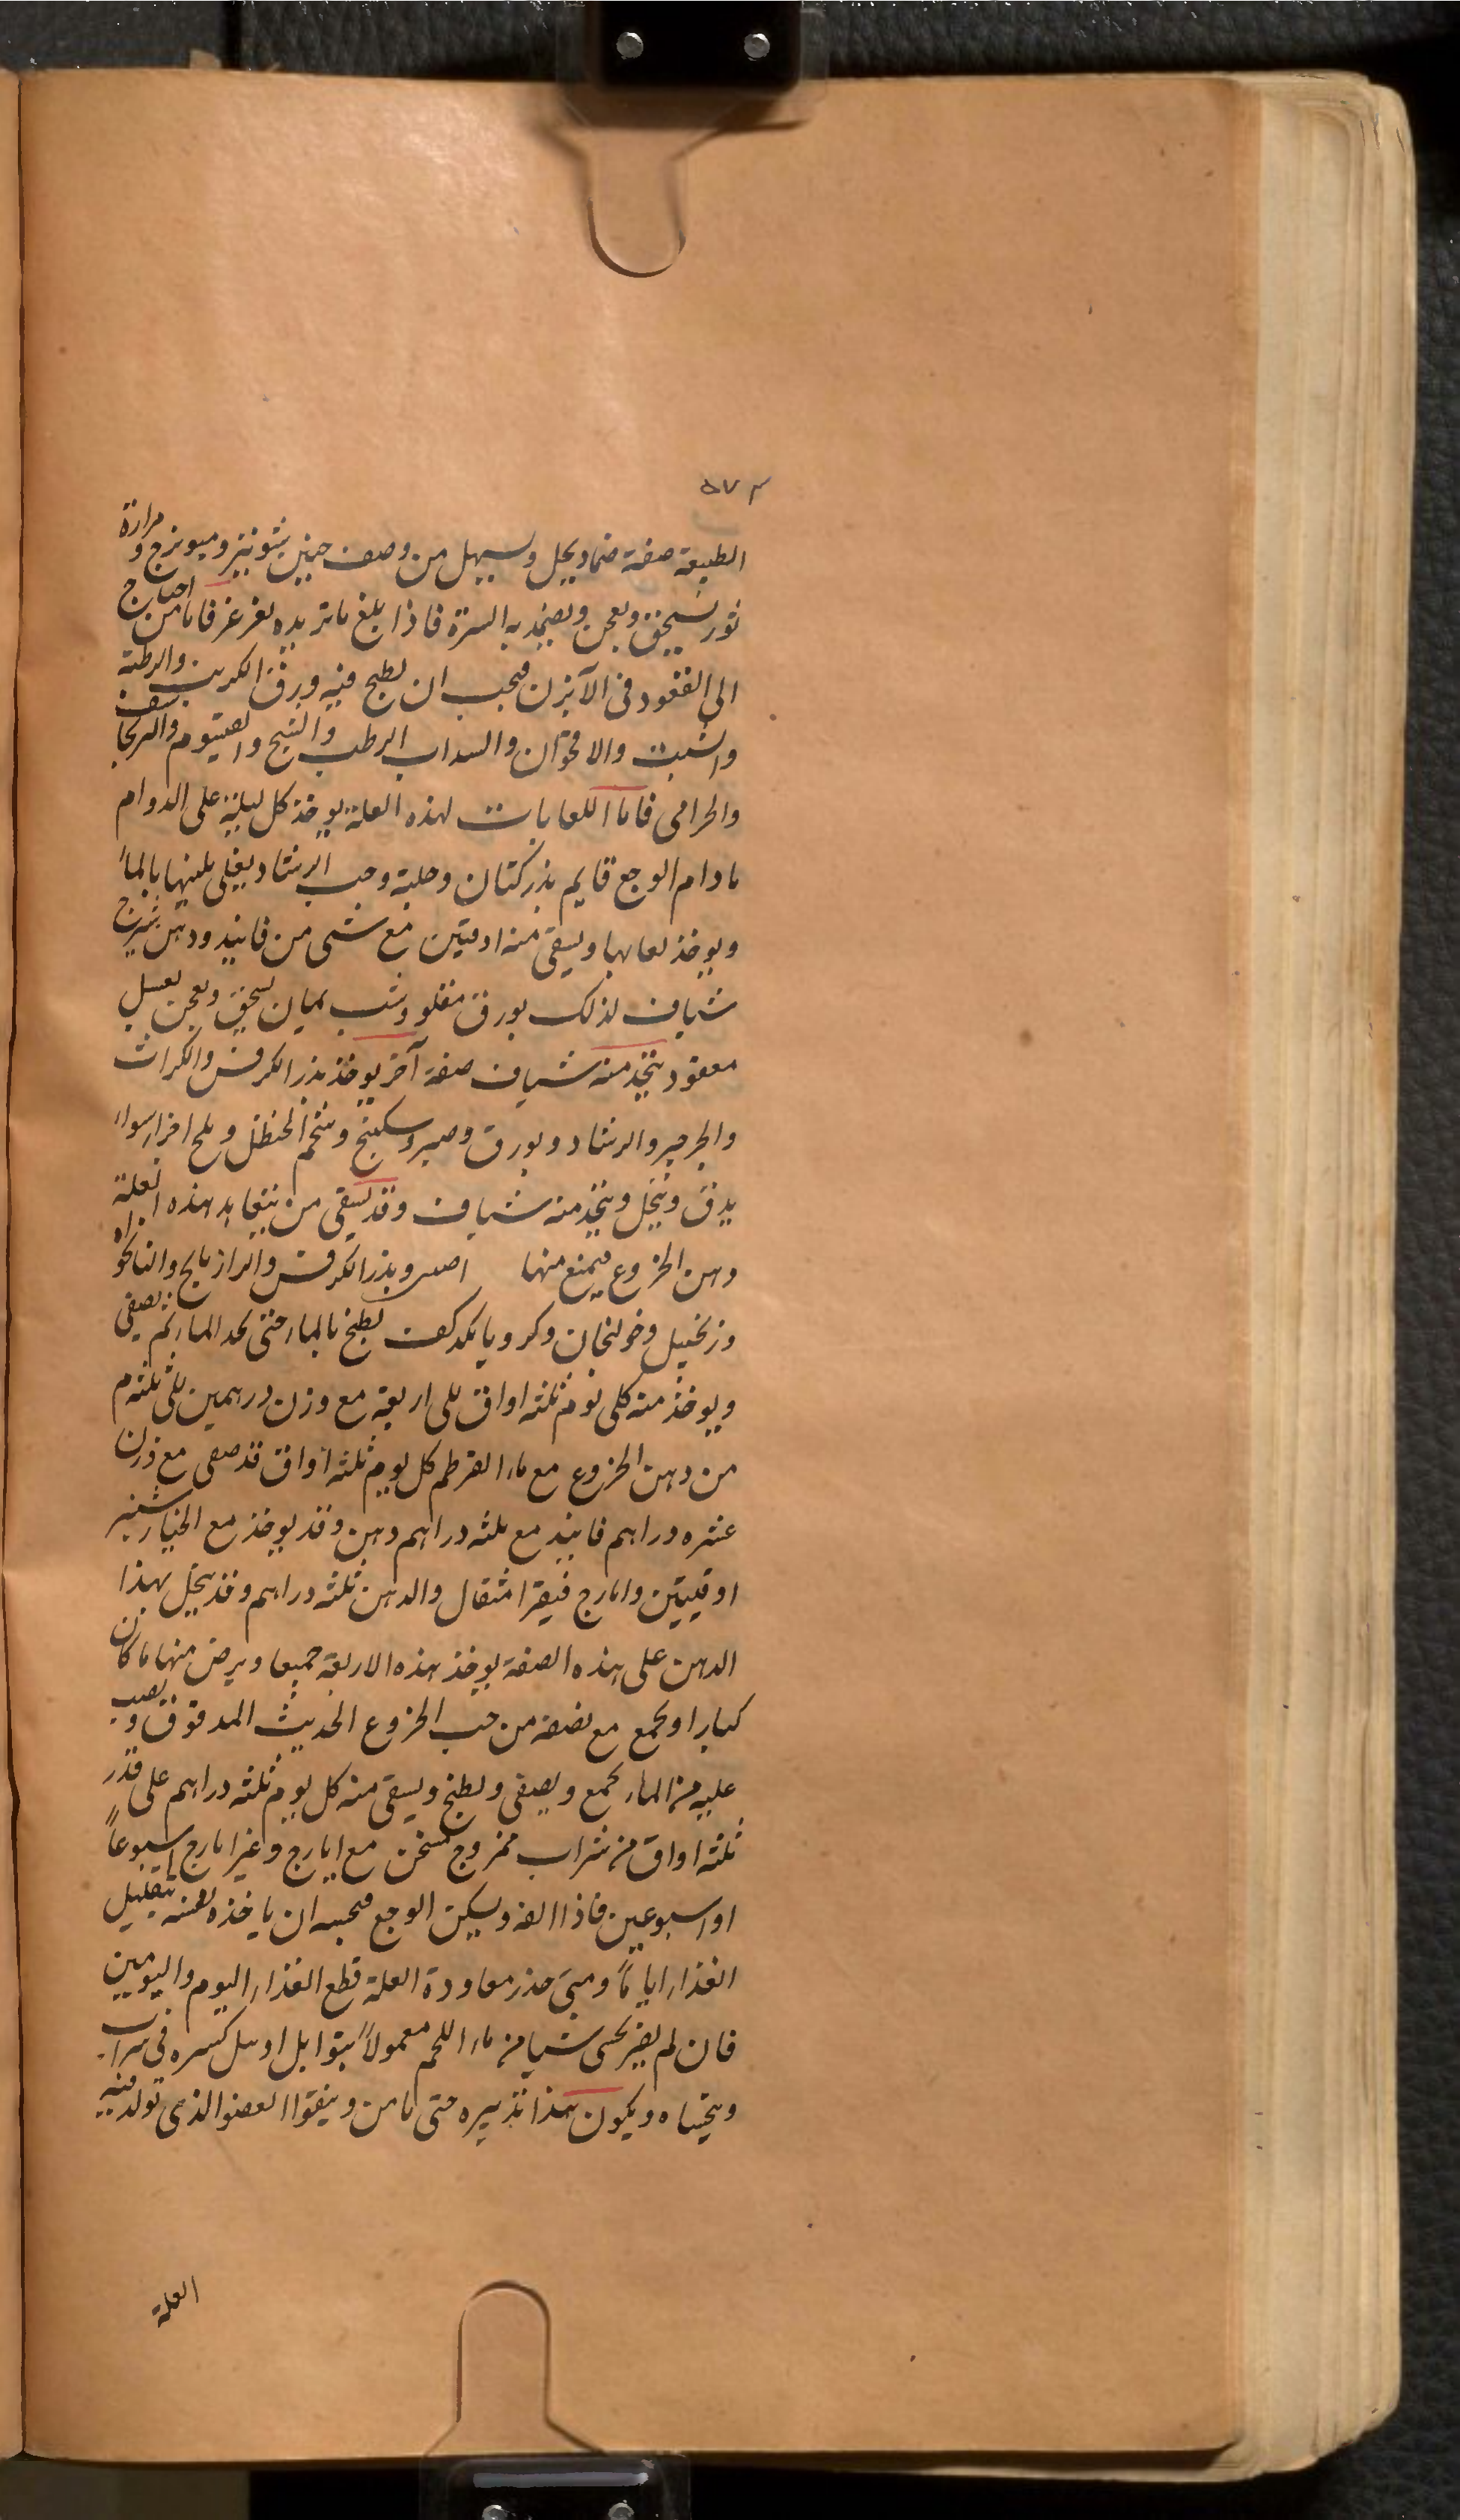 ٥٧٣
الطبيعة صفة ضماد يحل ويسهل من وصف حنين شونيز وميويزج ومرارة
ثور يسحق ويعجن ويضمد به السرة فاذا بلغ ما تريده فاما من احتاج
الى القعود فى الآبزن فيجب ان يطبخ فيه ورق الكرنب والرطبة
والشبث والاقحوان والسداب الرطب والشيح والقيصوم والبرنجاسف
والخزامى فاما اللعابات لهذه العلة يوخذ كل ليلة على الدوام
ما دام الوجع قايم بذر كتان وحلبة وحب الرشاد يغلى بالماء
ويوخذ لعابها ويسقى منه اوقيتين مع شى من فانيذ ودهن شيرج
شياف لذلك بورق مقلو وشب يمان يسحق ويعجن بعسل
معقود يتخذ منه شياف صفة آخر يوخذ بذر الكرفس والكراث
والجرجير والرشاد وبورق وصبر وسكبينج وشحم الحنظل وملح اجزا سواء
يدق وينخل ويتخذ منه شياف وقد يسقى من هذه العلة
دهن الخزوع فيمنع منها وبذر الكرفس والرازيانج والنانخواه
وزنجبيل وخولنجان وكرويا يطبخ بالماء حتى الماء ثم يصفى
ويوخذ منه كل يوم ثلثه اواق الى اربعة مع وزن درهمين الى ثلثة م
من دهن الخزوع مع ماء القرطم كل يوم ثلثه اواق قد صفى مع وزن
عشره دراهم فانيذ مع ثلثه دراهم دهن وقد يوخذ مع الخيارشنبر
اوقيتين وايارج فيقرا مثقال والدهن ثلثه دراهم وقد يتخذ هذا
الدهن على هذه الصفة يوخذ هذه الاربعة جميعا ويرض منها ما كان
كبارا ويجمع مع نصفه من حب الخزوع الحديث المدقوق ويصب
عليه من الماء يجمع ويصفى ويطبخ ويسقى منه كل يوم ثلثه دراهم على قدر
ثلثه اواق من شراب ممزوج مسخن مع ايارج وغير ايارج اسبوعاً
او اسبوعين فاذا الفه وسكن الوجع ان ياخذه بتقليل
الغذاء اياماً ومتى حذر معاودة العلة قطع الغذاء اليوم واليومين
فان لم يصبر يحسى شيا من ماء اللحم معمولاً بتوابل او بل كسره فى شراب
ويتحساه ويكون هذا تدبيره حتى يامن ويقوا العضو الذى تولد فيه
العلة